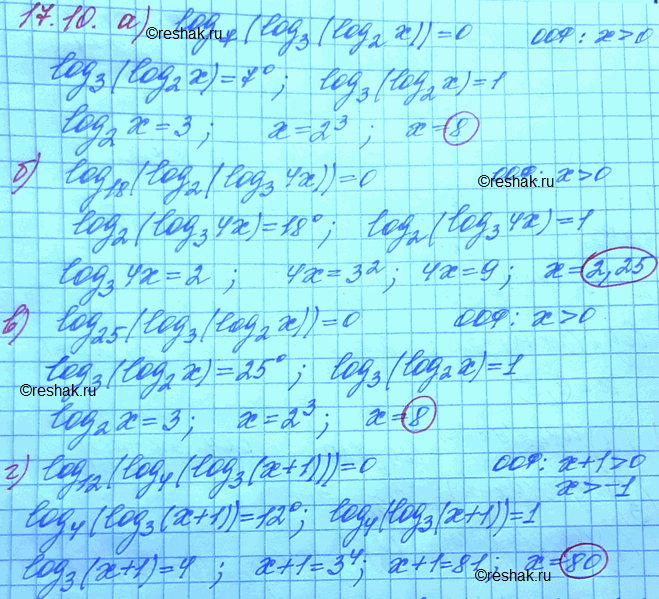 17.10. а) log₇(log₃(log₂x))=0 ООФ: x>0
©reshak.ru
log₃(log₂x)=7⁰; log₃(log₂x)=1
log₂x=3; x=2³; x=8
б) log₁₈(log₂(log₃4x))=0 ООФ: x>0
©reshak.ru
log₂(log₃4x)=18⁰; log₂(log₃4x)=1
log₃4x=2; 4x=3²; 4x=9; x=2,25
в) log₂₅(log₃(log₂x))=0 ООФ: x>0
log₃(log₂x)=25⁰; log₃(log₂x)=1
©reshak.ru
log₂x=3; x=2³; x=8
г) log₁₂(log₄(log₃(x+1)))=0 ООФ: x+1>0
x>-1
log₄(log₃(x+1))=12⁰; log₄(log₃(x+1))=1
log₃(x+1)=4; x+1=3⁴; x+1=81; x=80
©reshak.ru